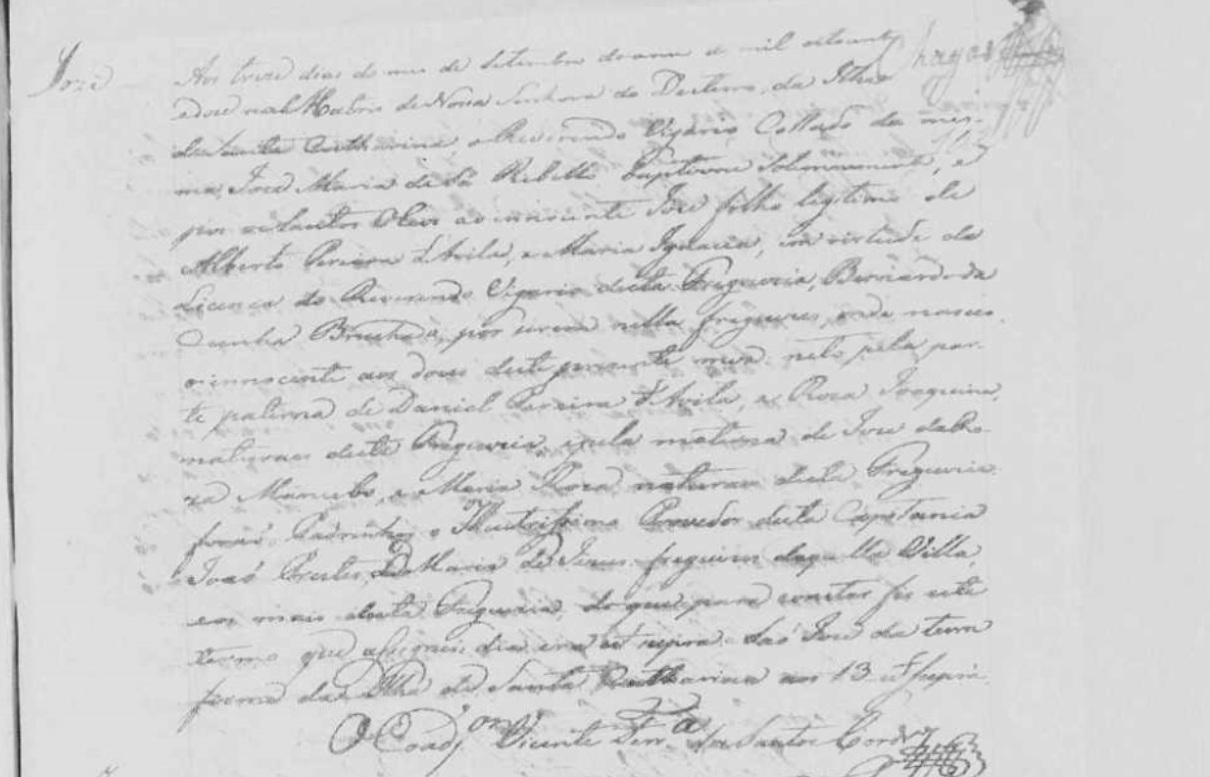 José
Aos treze dias do mes de Setembro do anno de mil oitocentos
e doze na Matris de Nossa Senhora do Desterro, da Ilha
de Santa Catharina o Reverendo Vigario Collado da mes-
ma, José Maria de Sá Rebello baptizou solemnemente, e
poz os Santos Oleos ao innocente José filho legitimo de
Alberto Pereira d'Avila, e Maria Ignacia, em virtude da
Licença do Reverendo Vigario desta Freguezia, Bernardo da
Cunha Bruchado, por serem nella freguezes, onde nasceo
o innocente aos dous deste prezente mez: neto pela par-
te paterna de Daniel Pereira d'Avila, e Roza Joaquina,
naturaes desta Freguezia, e pela materna de José da Ro-
za Mancebo, e Maria Roza naturaes desta Freguezia
forão Padrinhos o Illustrissimo Provedor desta Capitania
João Prestes, e Maria de Jezus freguezes daquella Villa,
e os mais desta Freguezia, do que para constar fiz este
termo que assignei dia era ut supra. José da
forma da Ilha de Santa Catharina aos 13 ut supra
O Coadjor Vicente Ferra dos Santos Cordro